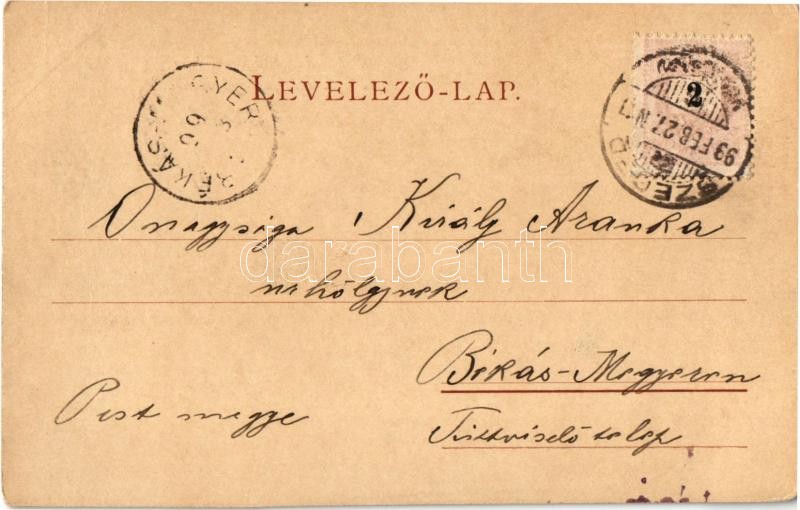 LEVELEZŐ-LAP.
2
SZEGED
99 FEB. 27. N
BÉKÁS-M GYER
99
Önagysága Király Aranka
úrhölgynek
darabanth
Békás-Megyeren
Pest megye
Tisztviselő telep